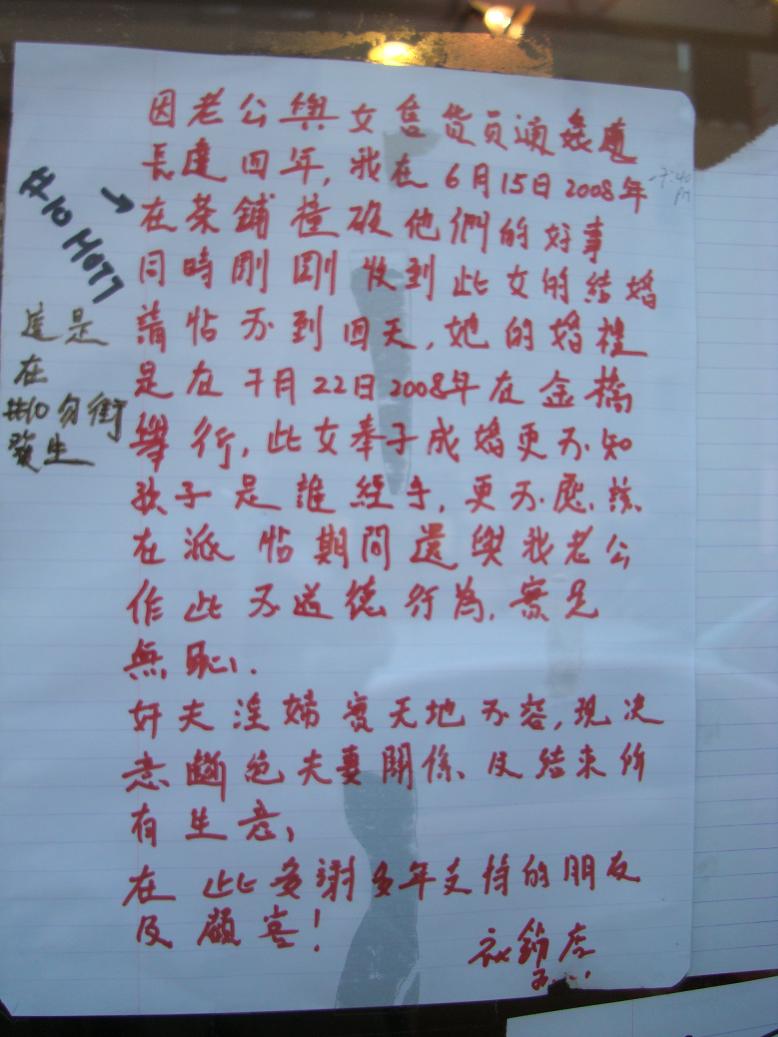 因老公與女售货員通姦達
長達四年，我在6月15日2008年
在茶鋪撞破他們的好事
同時剛剛收到此女的結婚
請帖不到四天，她的婚禮
是在7月22日2008年在金橋
舉行，此女奉子成婚更不知
孩子是誰經手，更不應該
在派帖期間還與我老公
作此不道德行為，實是
無恥、
奸夫淫婦實天地不容，現決
意斷絕夫妻關係、及結束所
有生意，
在此多謝多年支持的朋友
及顧客！
衣飾店
7:40
pm
#10 Hoyy
這是
在
#10勿街
發生